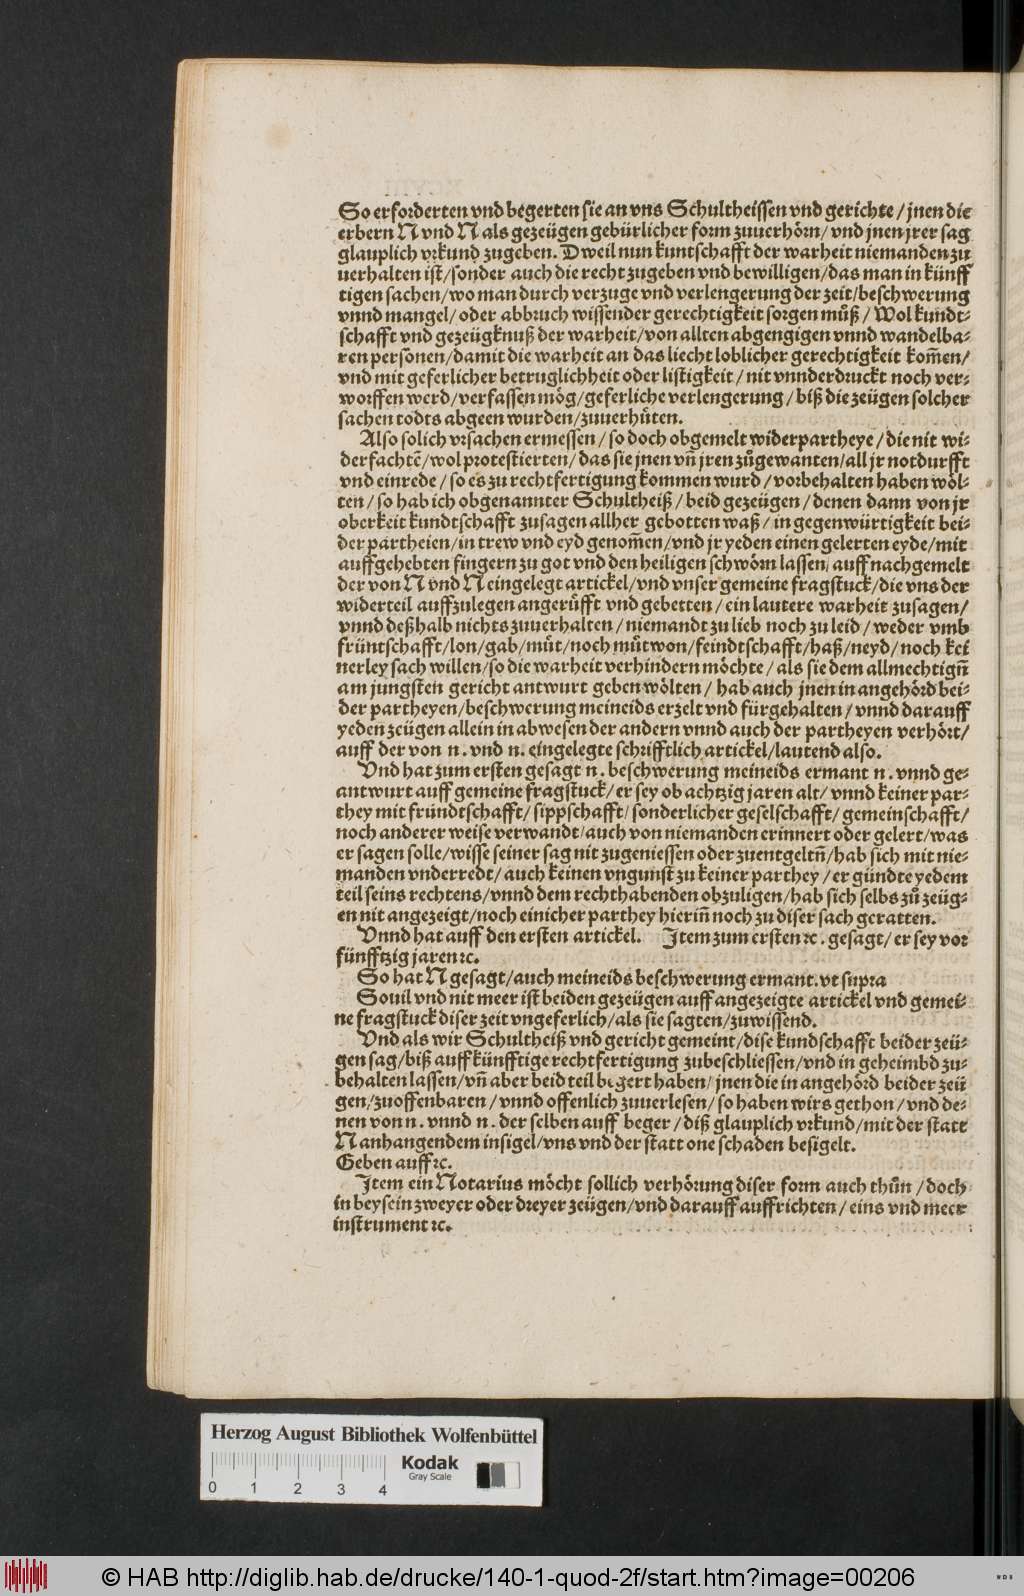 So erforderten vnd begerten sie an vns Schultheissen vnd gerichte / jnen die
erbern N vnd N als gezeügen gebürlicher form zuuerhörn / vnd jnen jrer sag
glauplich vrkund zugeben. Dweil nun kuntschafft der warheit niemanden zu
uerhalten ist / sonder auch die recht zugeben vnd bewilligen / das man in künff
tigen sachen / wo man durch verzuge vnd verlengerung der zeit / beschwerung
vnnd mangel / oder abbruch wissender gerechtigkeit sorgen můß / Wol kundt-
schafft vnd gezeügknuß der warheit / von allten abgengigen vnnd wandelba-
ren personen / damit die warheit an das liecht loblicher gerechtigkeit kom̃en /
vnd mit geferlicher betruglichheit oder listigkeit / nit vnnderdruckt noch ver-
worffen werd / verfassen mög / geferliche verlengerung / biß die zeügen solcher
sachen todts abgeen wurden / zuuerhüten.
Also solich vrsachen ermessen / so doch obgemelt widerpartheye / die nit wi-
derfachtē / wol protestierten / das sie jnen vn̄ jren zůgewanten / all jr notdurfft
vnd einrede / so es zu rechtfertigung kommen wurd / vorbehalten haben wöl-
ten / so hab ich obgenannter Schultheiß / beid gezeügen / denen dann von jr
oberkeit kundtschafft zusagen allher gebotten waß / in gegenwürtigkeit bei-
der partheien / in trew vnd eyd genom̃en / vnd jr yeden einen gelerten eyde / mit
auffgehebten fingern zu got vnd den heiligen schwörn lassen / auff nachgemelt
der von N vnd N eingelegt artickel / vnd vnser gemeine fragstuck / die vns der
widerteil auffzulegen angerüfft vnd gebetten / ein lautere warheit zusagen /
vnnd deßhalb nichts zuuerhalten / niemandt zu lieb noch zu leid / weder vmb
früntschafft / lon / gab / müt / noch můtwon / feindtschafft / haß / neyd / noch kei
nerley sach willen / so die warheit verhindern möchte / als sie dem allmechtign̄
am jungsten gericht antwurt geben wölten / hab auch jnen in angehörd bei-
der partheyen / beschwerung meineids erzelt vnd fürgehalten / vnnd darauff
yeden zeügen allein in abwesen der andern vnnd auch der partheyen verhört /
auff der von n. vnd n. eingelegte schrifftlich artickel / lautend also.
Vnd hat zum ersten gesagt n. beschwerung meineids ermant n. vnnd ge-
antwurt auff gemeine fragstuck / er sey ob achtzig jaren alt / vnnd keiner par-
they mit fründtschafft / sippschafft / sonderlicher geselschafft / gemeinschafft /
noch anderer weise verwandt / auch von niemanden erinnert oder gelert / was
er sagen solle / wisse seiner sag nit zugeniessen oder zuentgeltn̄ / hab sich mit nie-
manden vnderredt / auch keinen vngunst zu keiner parthey / er gündte yedem
teil seins rechtens / vnnd dem rechthabenden obzuligen / hab sich selbs zů zeüg-
en nit angezeigt / noch einicher parthey hierin̄ noch zu diser sach geratten.
Vnnd hat auff den ersten artickel. Item zum ersten ꝛc. gesagt / er sey vor
fünfftzig jaren ꝛc.
So hat N gesagt / auch meineids beschwerung ermant. vt supra
Souil vnd nit meer ist beiden gezeügen auff angezeigte artickel vnd gemei-
ne fragstuck diser zeit vngeferlich / als sie sagten / zuwissend.
Vnd als wir Schultheiß vnd gericht gemeint / dise kundschafft beider zeü-
gen sag / biß auff künfftige rechtfertigung zubeschliessen / vnd in geheimbd zu-
behalten lassen / vn̄ aber beid teil begert haben / jnen die in angehörd beider zeü
gen / zuoffenbaren / vnnd offenlich zuuerlesen / so haben wirs gethon / vnd de-
nen von n. vnnd n. der selben auff beger / diß glauplich vrkund / mit der statt
N anhangendem insigel / vns vnd der statt one schaden besigelt.
Geben auff ꝛc.
Item ein Notarius möcht sollich verhörung diser form auch thůn / doch
in beysein zweyer oder dreyer zeügen / vnd darauff auffrichten / eins vnd meer
instrument ꝛc.
Herzog August Bibliothek Wolfenbüttel
Kodak
Gray Scale
0 1 2 3 4
© HAB http://diglib.hab.de/drucke/140-1-quod-2f/start.htm?image=00206